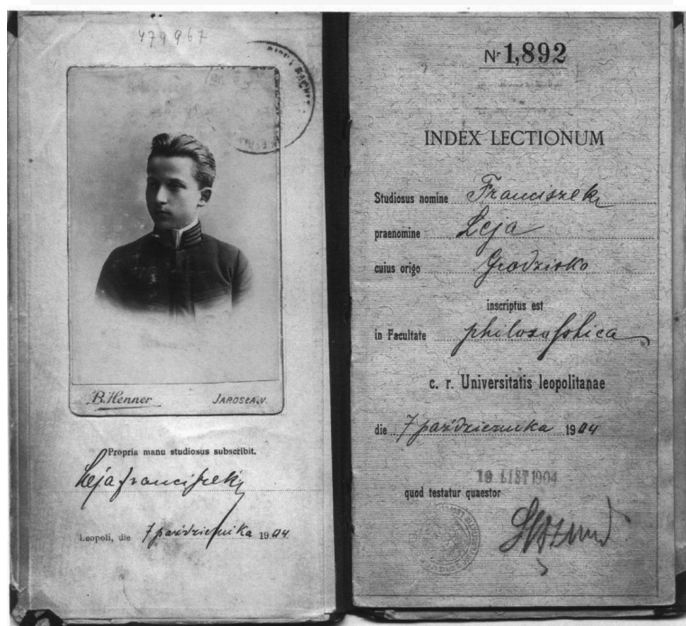 479967
B. Henner Jarosław.
Propria manu studiosus subscribit.
Leja Franciszek
Leopoli, die 7 października 1904
Nr 1,892
INDEX LECTIONUM
Studiosus nomine Franciszek
praenomine Leja
cuius origo Grodzisko
inscriptus est
in Facultate philozofolica
c. r. Universitatis leopolitanae
die 7 października 1904
19 LIST 1904
quod testatur quaestor